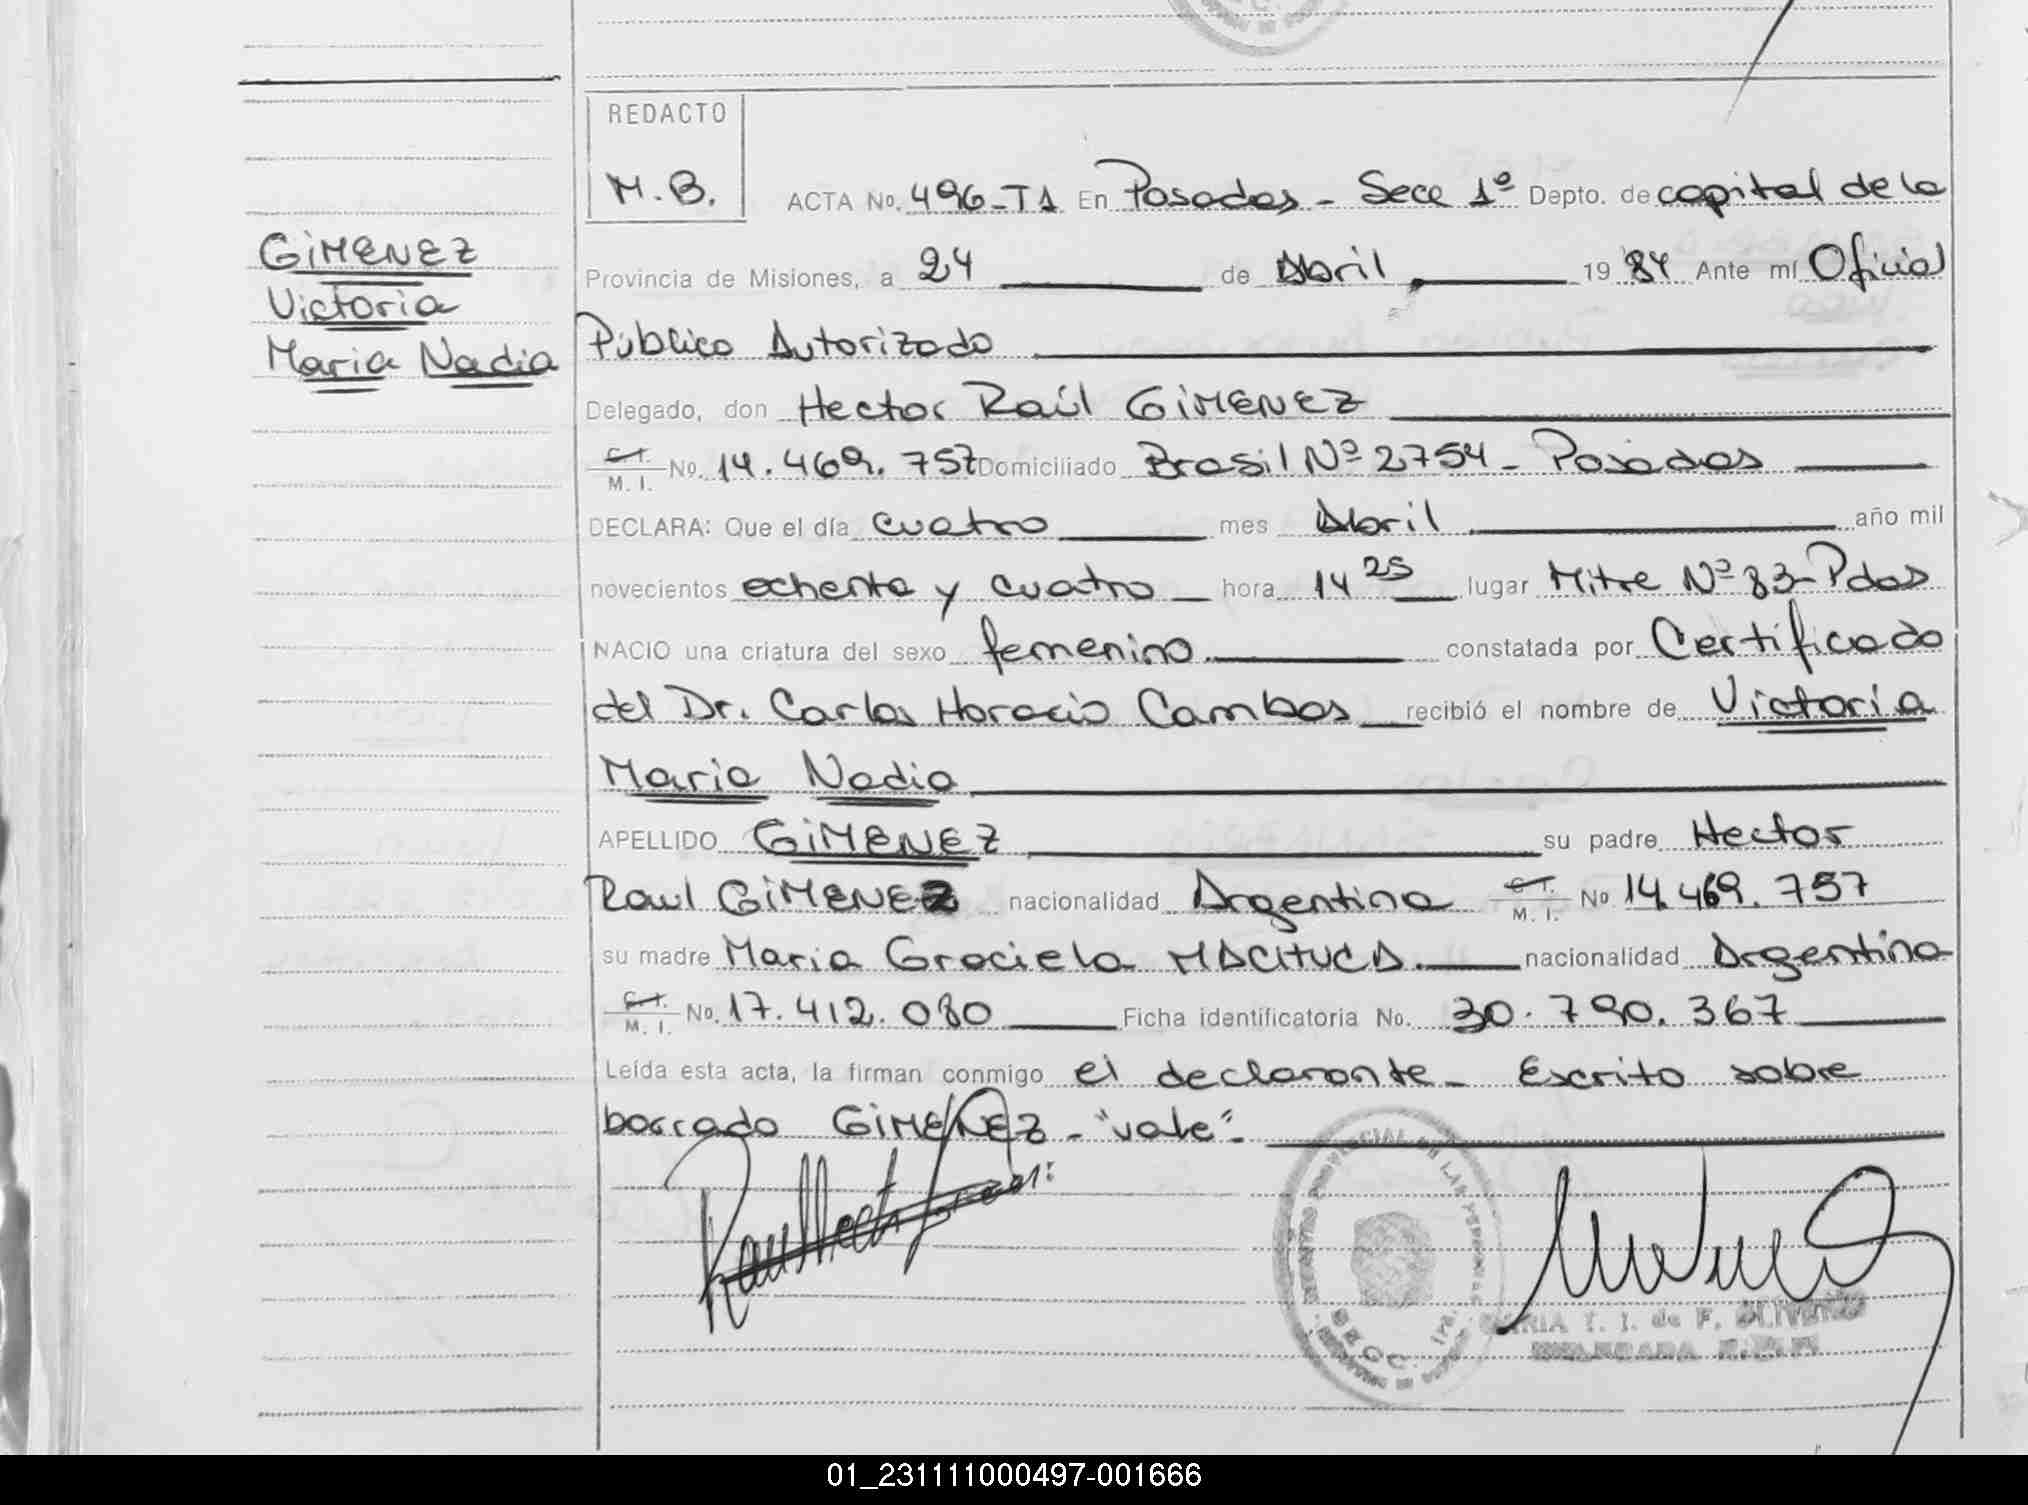 REDACTO
M.B.
ACTA No. 496-T1 En Posadas - Secc 1º Depto. de capital de la
GiMENEZ
Victoria
Maria Nadia
Provincia de Misiones, a 24 de Abril 1984 Ante mí Oficial
Público Autorizado
Delegado, don Hector Raúl GiMENEZ
C.I. M.I. No. 14.469.757 Domiciliado Brasil Nº 2754 - Posadas
DECLARA: Que el día cuatro mes Abril año mil
novecientos ochenta y cuatro hora 14 25 lugar Mitre Nº 83-Pdas
NACIO una criatura del sexo femenino constatada por Certificado
del Dr. Carlos Horacio Cambas recibió el nombre de Victoria
Maria Nadia
APELLIDO GiMENEZ su padre Hector
Raul GiMENEZ nacionalidad Argentina C.I. M.I. No 14.469.757
su madre Maria Graciela nacionalidad Argentina
C.I. M.I. No. 17.412.080 Ficha identificatoria No. 30.790.367
Leída esta acta, la firman conmigo el declarante - Escrito sobre
borrado GiMENEZ - "vale" -
MARIA I. I. de F.
01_231111000497-001666